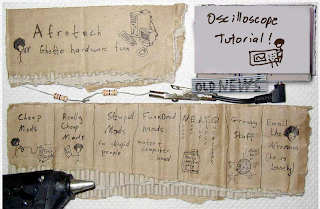 Afrotech
Ghetto hardware fun
Oscilloscope
Tutorial!
OLD NEWS
Cheap
Mods
Really
Cheap
Mods
Stupid
Mods
for stupid
people
Mods
MEAT
Groovy
Stuff
Email the
Afroman
(he is
lonely)